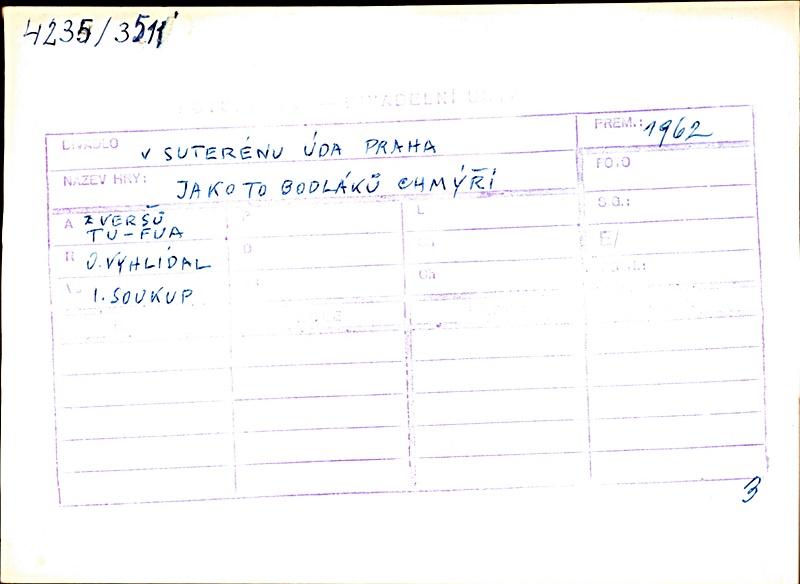 4235/3511
DIVADELNÍ
DIVADLO V SUTERÉNU ÚDA PRAHA
PREM.: 1962
NÁZEV HRY: JAKO TO BODLÁKŮ CHMÝŘÍ
FOTO
A Z VERŠŮ
TU-FUA
L
S.G.:
R O. VYHLÍDAL
O
E/
I. SOUKUP
Ch
3